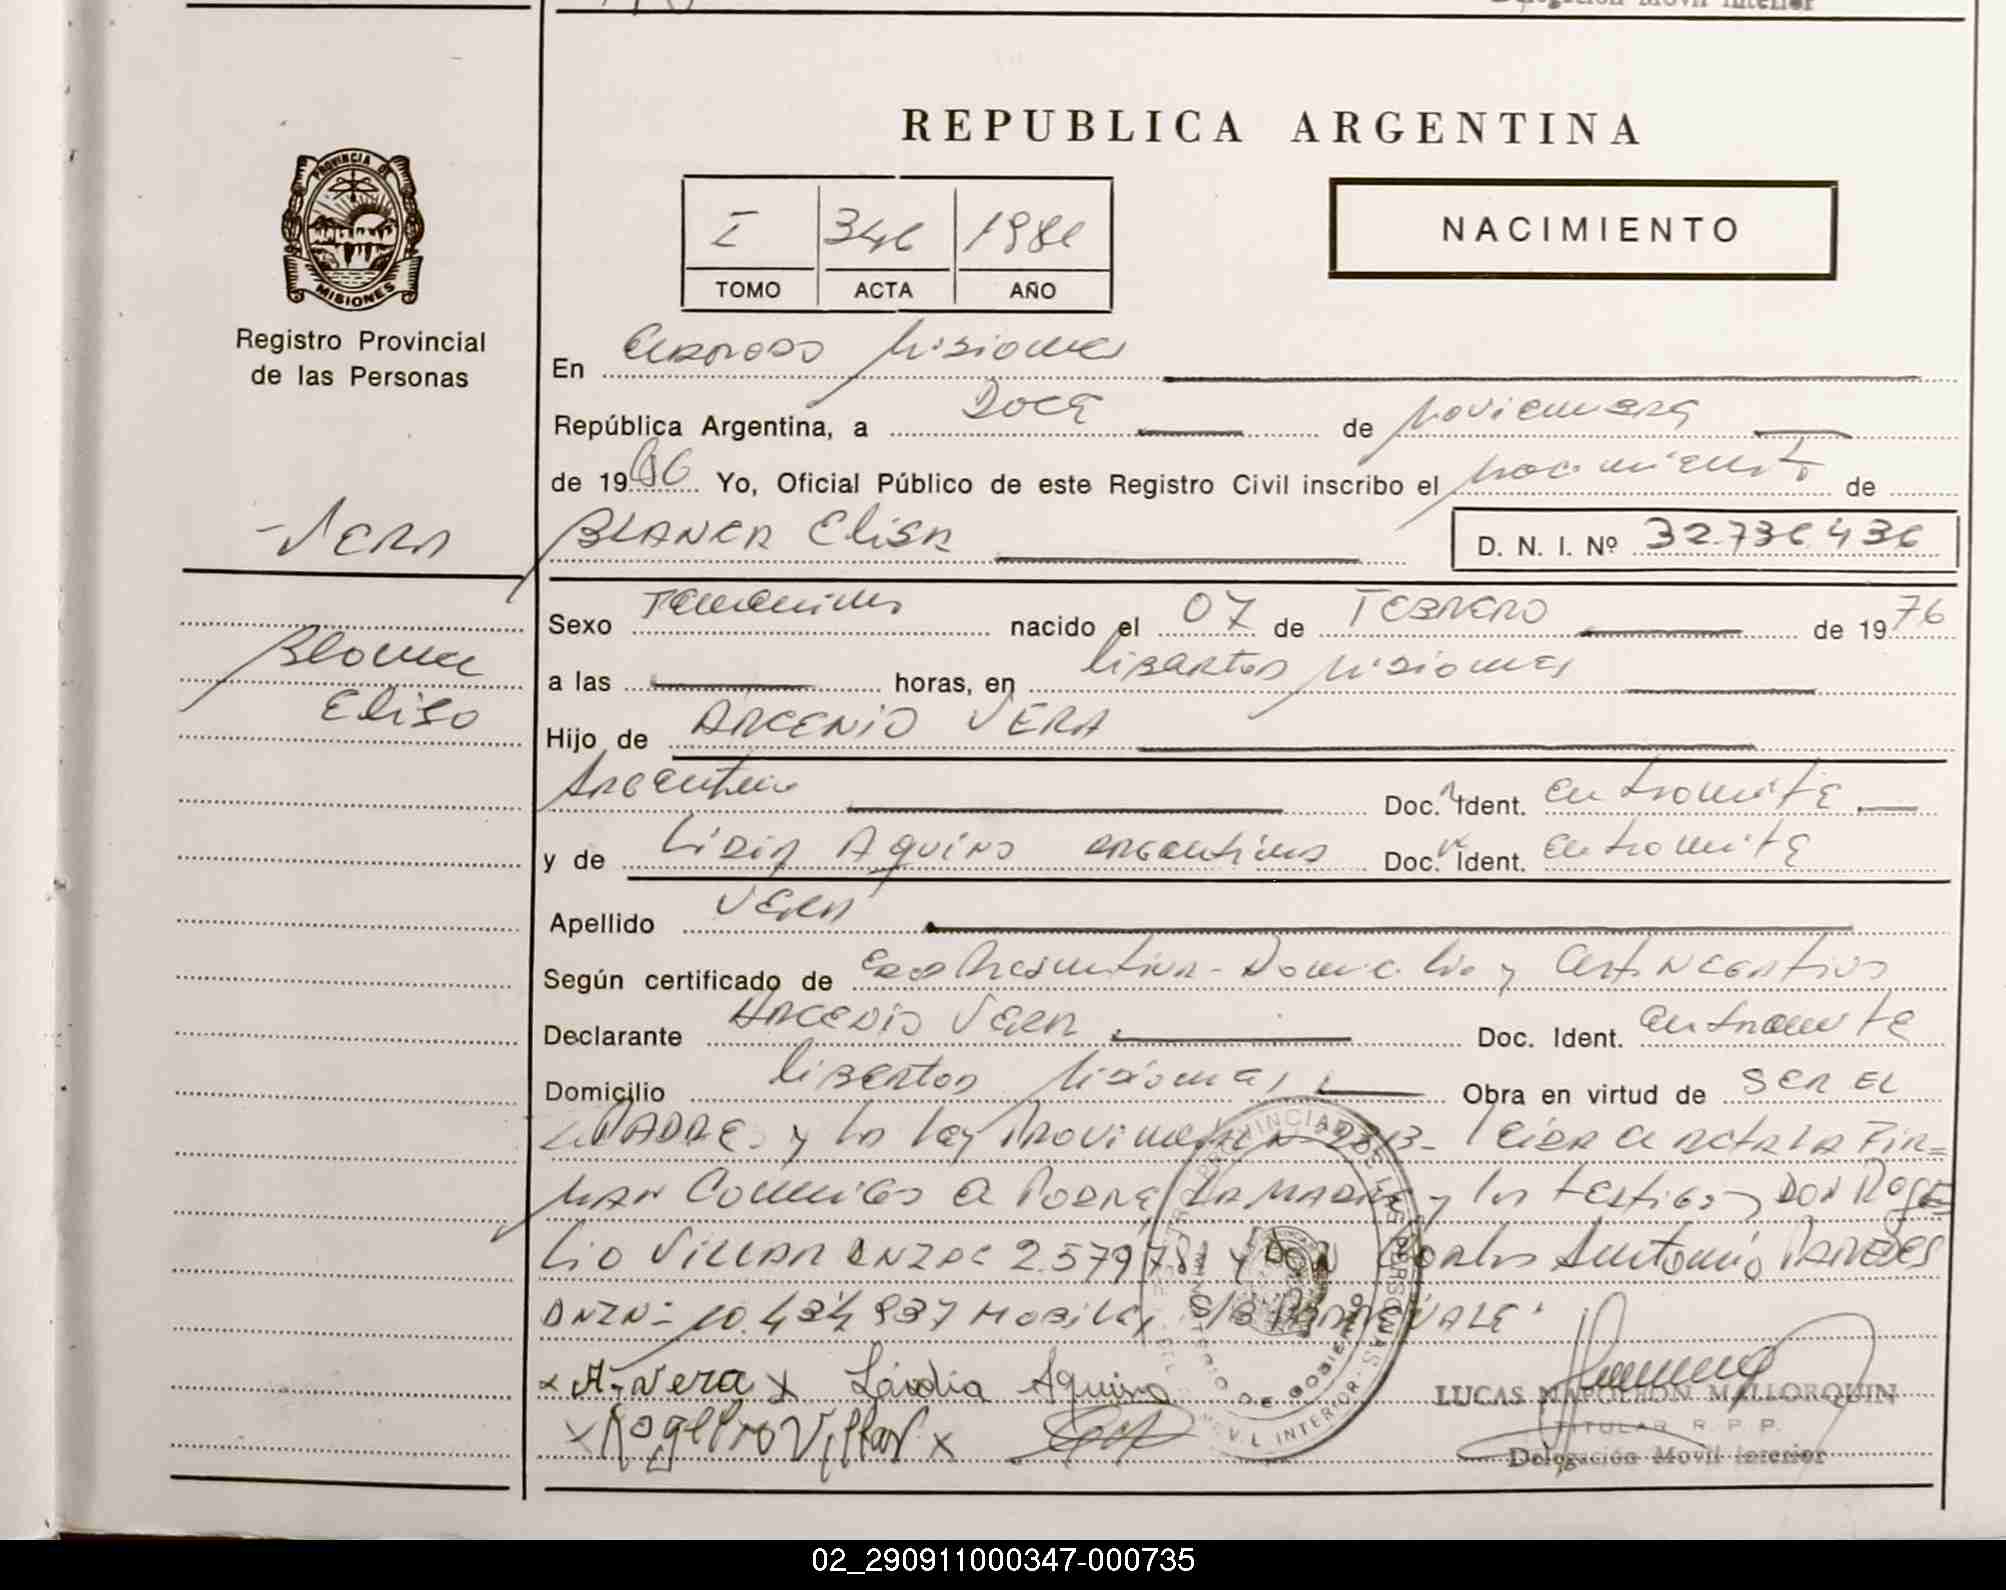 Delegación Movil Interior
REPUBLICA ARGENTINA
PROVINCIA DE
MISIONES
Registro Provincial
de las Personas
I 346 1986
TOMO ACTA AÑO
NACIMIENTO
En Misiones
República Argentina, a Doce de noviembre
de 1986 Yo, Oficial Público de este Registro Civil inscribo el nacimiento de
BLANCA Elisa D. N. I. Nº 32.736.436
-VERA
Blanca
Elisa
Sexo Femenino nacido el 07 de FEBRERO de 1976
a las horas, en libertad Misiones
Hijo de ARCENIO VERA
Argentino Doc. Ident. en tramite
y de Lidia Aquino argentina Doc. Ident. en tramite
Apellido VERA
Según certificado de Edad Presuntiva - Domicilio y Cert. Negativo
Declarante ARCENIO VERA Doc. Ident. en tramite
Domicilio libertad Misiones Obra en virtud de SER EL
PADRE y la ley Provincial N leida el acta la FIR=
MAN conmigo el Padre, LA MADRE y los testigos DON ROGE
LIO VILLAR 2.579.781 y DON Carlos Antonio PAREDES
DNI N- 10.434.937
x A. Vera x Laidia Aquino
x Rogelio Villar x
REGISTRO PROVINCIAL DE LAS PERSONAS
MINISTERIO DE GOBIERNO
MOVIL INTERIOR
LUCAS NAPOLEON MALLORQUIN
TITULAR R. P. P.
Delegación Movil Interior
02_290911000347-000735